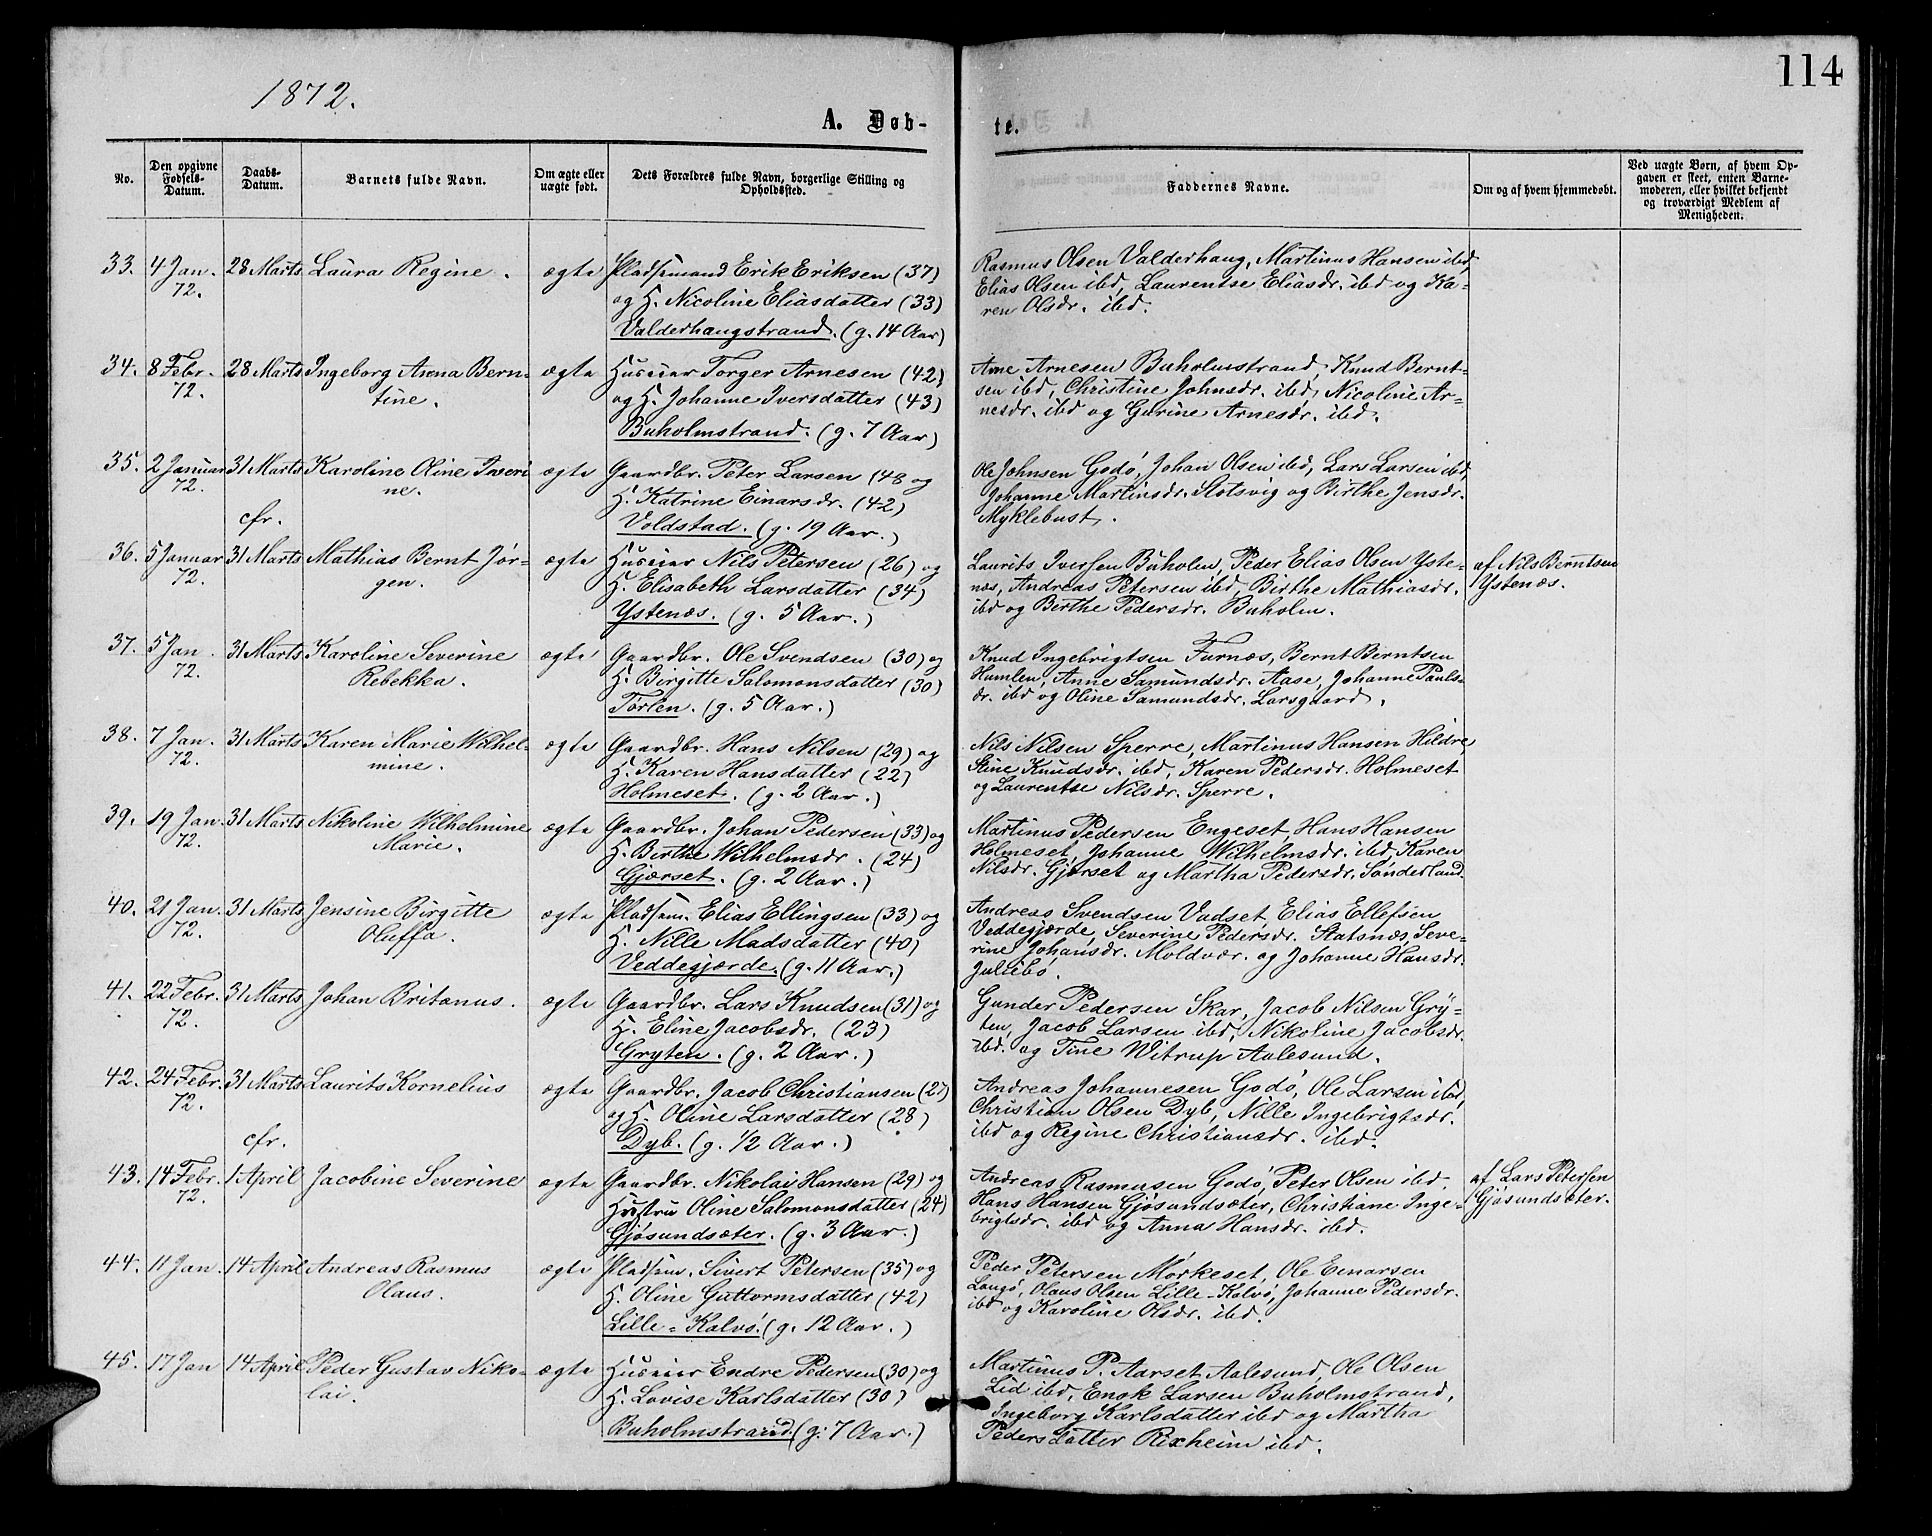 114
1872.
A. Døb-
te.
No.
Den opgivne Fødsels-Datum.
Daabs-Datum.
Barnets fulde Navn.
Om ægte eller uægte født.
Dets Forældres fulde Navn, borgerlige Stilling og Opholdssted.
Faddernes Navne.
Om og af hvem hjemmedøbt.
Ved uægte Børn, af hvem Op-
gaven er skeet, enten Barne-
moderen, eller hvilket bekjendt
og troværdigt Medlem af
Menigheden.
33. 4 Jan. 28 Marts Laura Regine. ægte Pladsemand Erik Eriksen (37)
72. og H. Nicoline Eliasdatter (33)
Valderhaugstrand. (g. 14 Aar)
Rasmus Olsen Valderhaug, Martinus Hansen ibd,
Elias Olsen ibd, Laurentse Eliasdr. ibd og Ka-
ren Olsdr. ibd.
34. 8 Febr. 28 Marts Ingeborg Anna Bern- ægte Huseier Torger Arnesen (42)
72. tine. og H. Johanne Iversdatter (43)
Buholmstrand. (g. 7 Aar)
Arne Arnesen Buholmstrand, Knud Bernt-
sen ibd, Christine Johnsdr. ibd, Nicoline Ar-
nesdr. ibd og Gurine Arnesdr. ibd.
35. 2 Januar 31 Marts Karoline Oline Inseri- ægte Gaardbr. Peter Larsen (48 og
72. ne. H. Katrine Einarsdr. (42)
cfr. Voldstad. (g. 19 Aar.)
Ole Johnsen Godö, Johan Olsen ibd, Lars Larsen ibd,
Johanne Martinsdr. Slotsvig og Birthe Jensdr.
Myklebust.
36. 5 Januar 31 Marts Mathias Bernt Jör- ægte Huseier Nils Petersen (26) og
72. gen. H. Elisabeth Larsdatter (34)
Ystenæs. (g. 5 Aar.)
Laurits Iversen Buholm, Peder Elias Olsen Yste-
næs, Andreas Petersen ibd, Birthe Mathiasdr.
ibd og Berthe Pedersdr. Buholm.
af Nils Berntsen
Ystenæs.
37. 5 Jan. 31 Marts Karoline Severine ægte Gaardbr. Ole Svendsen (30) og
72. Rebekka. H. Birgitte Salomonsdatter (30)
Torlen. (g. 5 Aar.)
Knud Ingebrigtsen Furnæs, Bernt Berntsen
Humlen, Anne Samundsdr. Aase, Johanne Pauls-
dr. ibd og Oline Samundsdr. Larsgaard.
38. 7 Jan. 31 Marts Karen Marie Wilhel- ægte Gaardbr. Hans Nilsen (29) og
72. mine. H. Karen Hansdatter (22)
Holmeset. (g. 2 Aar.)
Nils Nilsen Sperre, Martinus Hansen Hildre,
Stine Knudsdr. ibd, Karen Pedersdr. Holmeset
og Laurentse Nilsdr. Sperre.
39. 19 Jan. 31 Marts Nikoline Wilhelmine ægte Gaardbr. Johan Pedersen (33) og
72. Marie. H. Birthe Wilhelmsdr. (24)
Gjærset. (g. 2 Aar.)
Martinus Pedersen Engeset, Hans Hansen
Holmeset, Johanne Wilhelmsdr. ibd, Karen
Nilsdr. Gjörset og Martha Pedersdr. Sönderland.
40. 21 Jan. 31 Marts Jensine Birgitte ægte Pladsem. Elias Ellingsen (33) og
72. Oluffa. H. Nille Madsdatter (40)
Veddegjærde. (g. 11 Aar.)
Andreas Svendsen Vadset, Elias Ellefsen
Veddegjærde, Severine Pedersdr. Slatsnæs, Seve-
rine Johansdr. Moldvær. og Johanne Hansdr.
Juliebö.
41. 22 Febr. 31 Marts Johan Britanus. ægte Gaardbr. Lars Knudsen (31) og
72. H. Eline Jacobsdr. (23)
Gryten. (g. 2 Aar.)
Gunder Pedersen Skar, Jacob Nilsen Gry-
ten, Jacob Larsen ibd, Nikoline Jacobsdr.
ibd. og Tine Witrup Aalesund.
42. 24 Febr. 31 Marts Laurits Kornelius ægte Gaardbr. Jacob Christiansen (27)
72. og H. Oline Larsdatter (28)
cfr. Dyb. (g. 1/2 Aar.)
Andreas Johannesen Godö, Ole Larsen ibd,
Christian Olsen Dyb, Nille Ingebrigtsdr.
ibd og Regine Christiansdr. ibd.
43. 14 Febr. 1 April Jacobine Severine ægte Gaardbr. Nikolai Hansen (29) og
72. Hustru Oline Salomonsdatter (24)
Gjösundsæter. (g. 3 Aar.)
Andreas Rasmusen Godö, Peter Olsen ibd.
Hans Hansen Gjösundsæter, Christiane Inge-
brigtsdr. ibd og Anna Hansdr. ibd.
af Lars Petersen
Gjösundsæter.
44. 11 Jan. 14 April Andreas Rasmus ægte Pladsem. Sivert Petersen (35) og
Olaus. H. Oline Guttormsdatter (42)
Lille-Kalvö. (g. 12 Aar.)
Peder Petersen Mörkeset, Ole Einarsen
Langö, Olaus Olsen Lille-Kalvö, Johanne Pedersdr.
ibd og Karoline Olsdr. ibd.
45. 17 Jan 14 April Peder Gustav Niko- ægte Huseier Endre Pedersen (30) og
lai. H. Lovise Karlsdatter (30)
Buholmstrand. (g. 7 Aar.)
Martinus P. Aarset Aalesund, Ole Olsen
Lid ibd, Enok Larsen Buholmstrand,
Ingeborg Karlsdatter ibd og Martha
Pedersdatter Rixheim ibd.